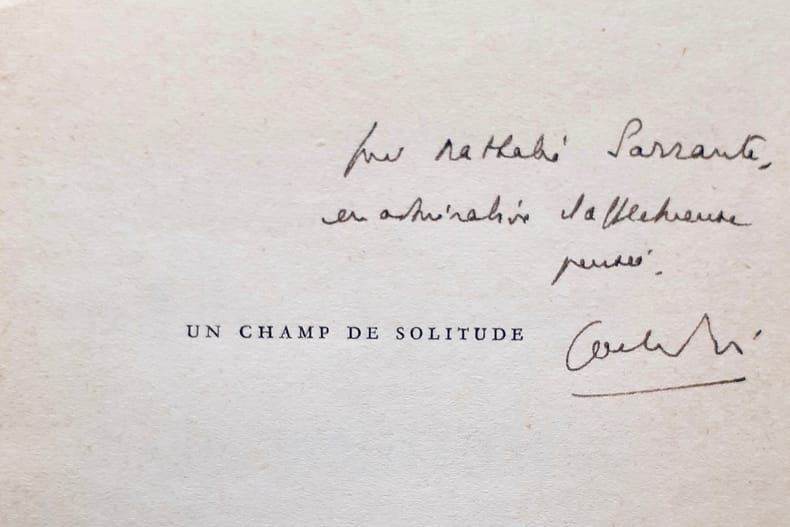 pour Nathalie Sarraute,
en admirative et affectueuse
pensée.
UN CHAMP DE SOLITUDE